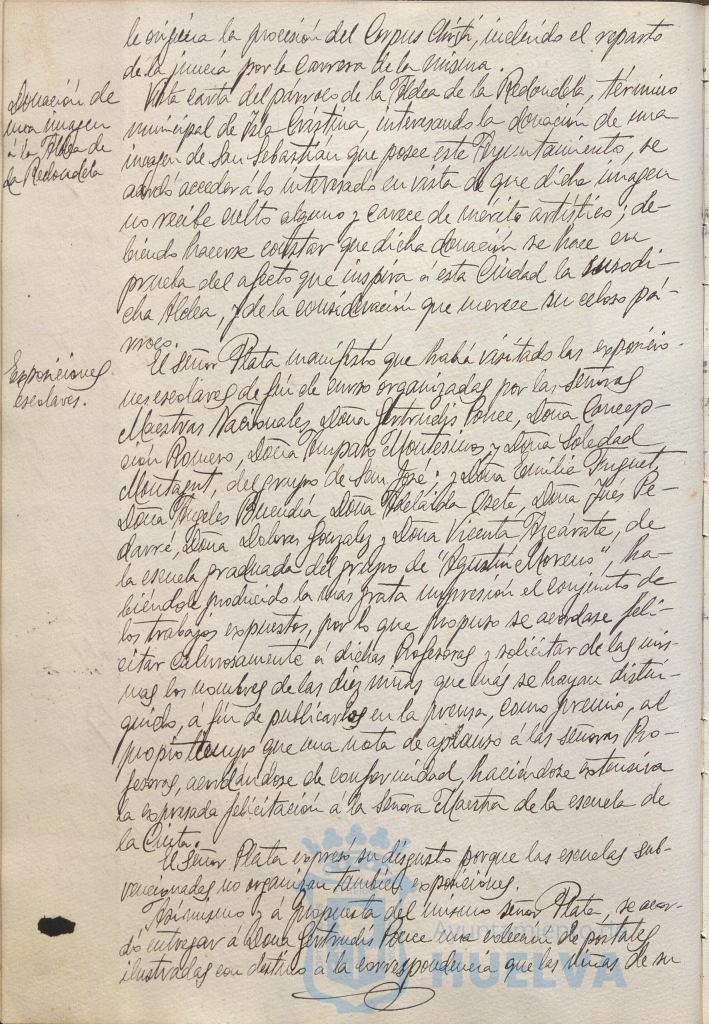 le origina la procesión del Corpus Christi, incluido el reparto
de la juncia por la carrera de la misma.
Donación de
una imagen
á la Aldea de
La Redondela
Vista carta del párroco de la Aldea de la Redondela, término
municipal de Isla Cristina, interesando la donación de una
imagen de San Sebastián que posee este Ayuntamiento, se
acordó acceder á lo interesado en vista de que dicha imagen
no recibe culto alguno y carece de mérito artístico; de-
biendo hacerse constar que dicha donación se hace en
prueba del afecto que inspira á esta Ciudad la susodi-
cha Aldea, y de la consideración que merece su celoso pá-
rroco.
Exposiciones
escolares.
El Señor Plata manifestó que había visitado las exposicio-
nes escolares de fin de curso organizadas por las Señoras
Maestras Nacionales, Doña Gertrudis Ponce, Doña Concep-
ción Romero, Doña Amparo Montesinos y Doña Soledad
Montagut, del grupo de San José; y Doña Emilia Huguet,
Doña Angeles Buendía, Doña Adelaida Osete, Doña Inés Pe-
Doña Dolores Gonzalez y Doña Vicenta Azcárate, de
la escuela graduada del grupo de "Agustín Moreno", ha-
biéndole producido la más grata impresión el conjunto de
los trabajos expuestos, por lo que propuso se acordase feli-
citar calurosamente á dichas Profesoras y solicitar de las mis-
mas los nombres de las diez niñas que más se hayan distin-
guido, á fin de publicarlos en la prensa, como premio, al
propio tiempo que una nota de aplauso á las señoras Pro-
fesoras, acordándose de conformidad, haciéndose extensiva
la expresada felicitación á la Señora Maestra de la escuela de
la Cinta.
El Señor Plata expresó su disgusto porque las escuelas sub-
vencionadas no organizan también exposiciones.
Asimismo y á propuesta del mismo señor Plata, se acor-
dó entregar á Doña Gertrudis Ponce una colección de postales
ilustradas con destino á la correspondencia que las niñas de su
Ayuntamiento de
HUELVA